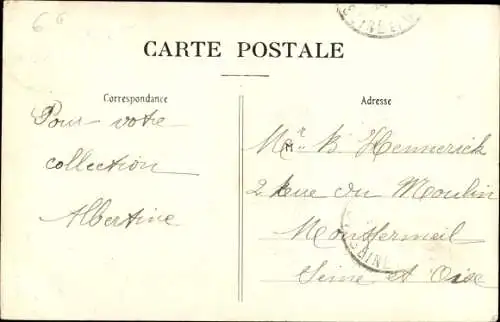 66
CARTE POSTALE
Correspondance
Pour votre
collection
Albertine
Adresse
Mr B Hennerick
2 Rue du Moulin
Montfermeil
Seine et Oise